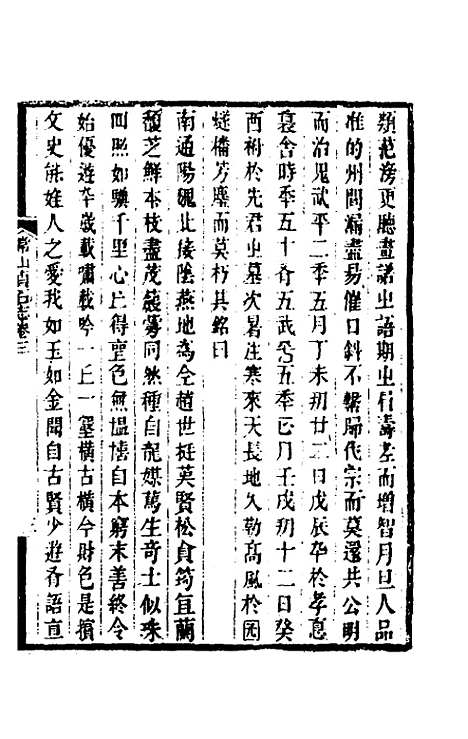 類范滂更聽畫諾㞢語期㞢眉壽孝而增智月旦人品
准的州閭漏盡易催日斜不繫歸代宗而莫還共公明
而治鬼武平二秊五月丁未朔廿二日戊辰卒於孝息
裏舍時秊五十有五武平五秊正月壬戌朔十二日癸
酉祔於先君㞢墓次暑往寒來天長地久勒高風於囦
燧播芳塵而莫朽其銘曰
南通陽魏北接陰燕地為全趙世挺英賢松貞筠宜蘭
馥芝鮮本枝盡茂蔟萼同然種自龍媒萬生奇士似珠
四照如驥千里心上得聖色無慍憘自本窮末善終令
始優遊卒歲載嘯載吟一丘一壑橫古橫今財色是擯
文史能婬人之愛我如玉如金聞自古賢少遊有語直
常山貞石志卷三
三